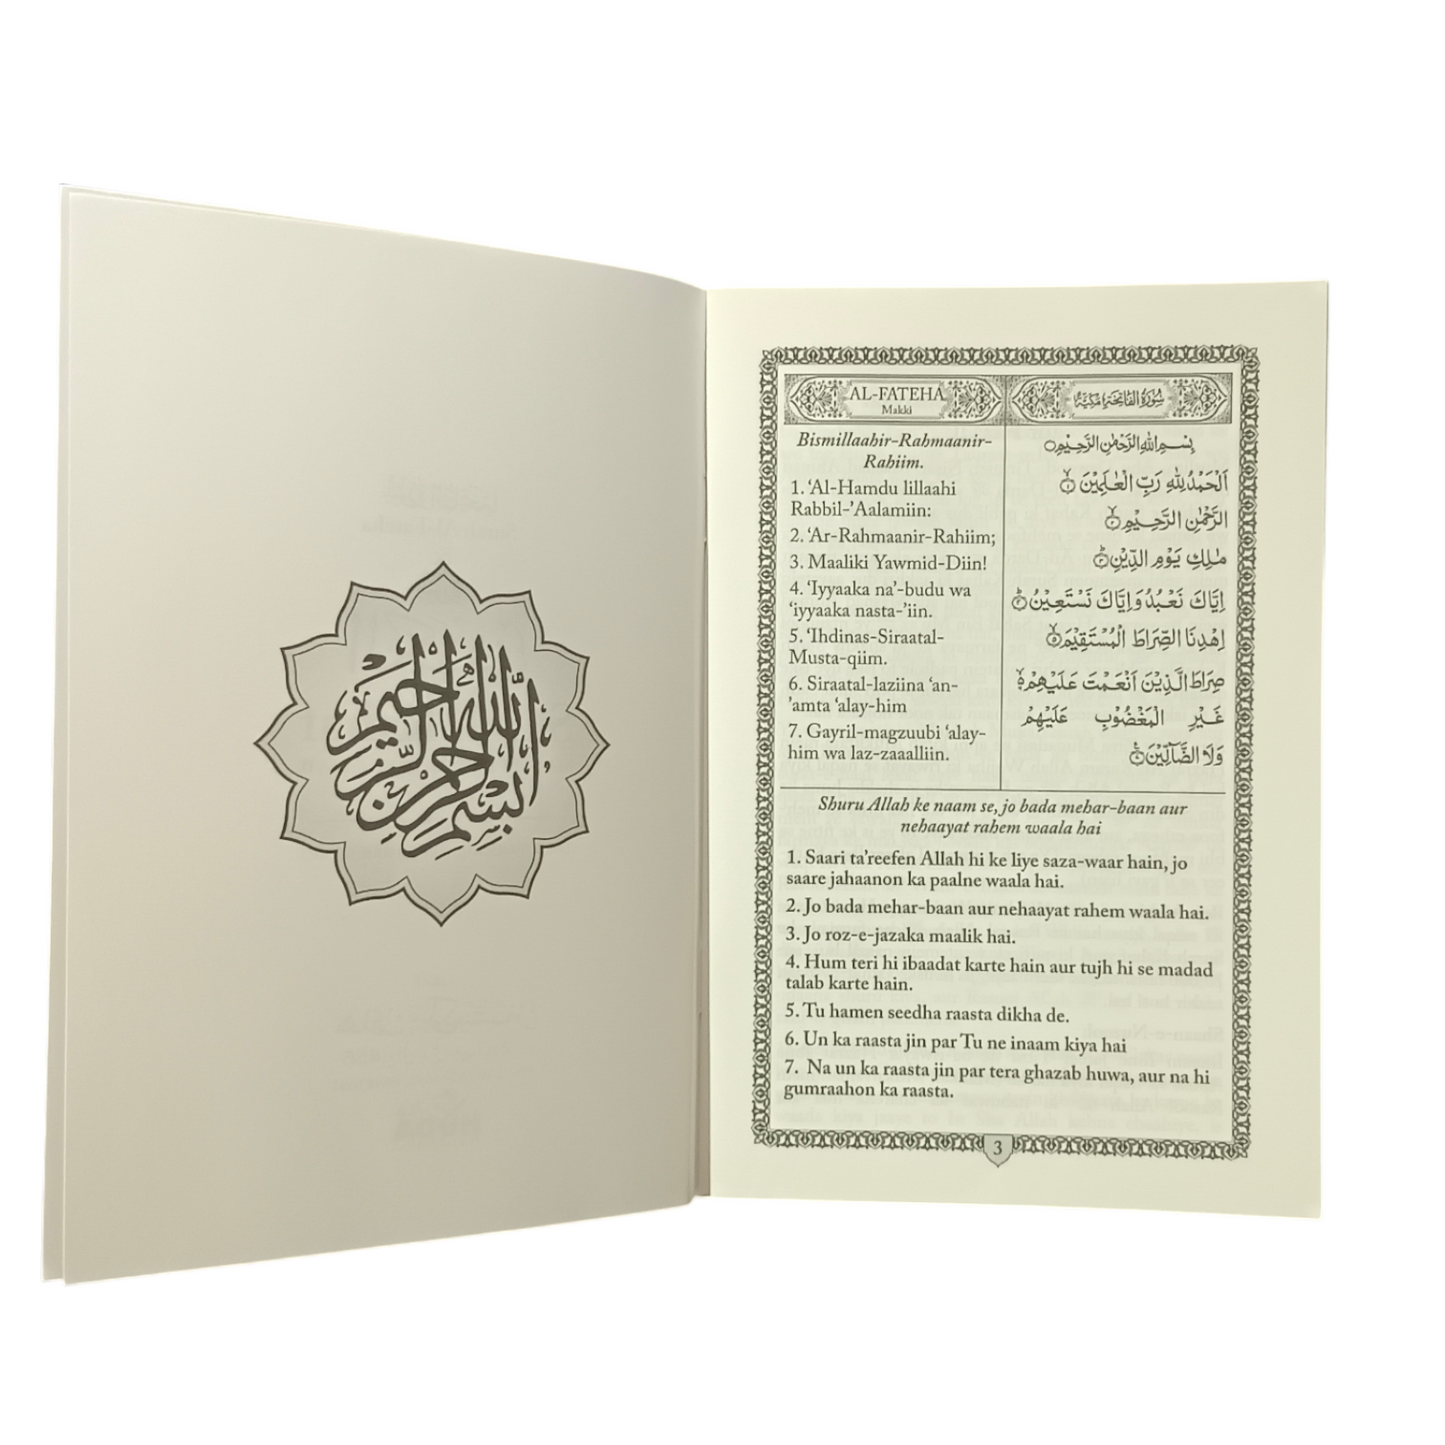 بسم الله الرحمن الرحيم
AL-FATEHA
Makki
سُوْرَةُ الْفَاتِحَةِ مَكِّيَّةٌ
Bismillaahir-Rahmaanir-
Rahiim.
1. ‘Al-Hamdu lillaahi
Rabbil-’Aalamiin:
2. ‘Ar-Rahmaanir-Rahiim;
3. Maaliki Yawmid-Diin!
4. ‘Iyyaaka na’-budu wa
‘iyyaaka nasta-’iin.
5. ‘Ihdinas-Siraatal-
Musta-qiim.
6. Siraatal-laziina ‘an-
’amta ‘alay-him
7. Gayril-magzuubi ‘alay-
him wa laz-zaaalliin.
بِسْمِ اللّٰهِ الرَّحْمٰنِ الرَّحِيْمِ
اَلْحَمْدُ لِلّٰهِ رَبِّ الْعٰلَمِيْنَ ۙ‏﴿۱﴾
الرَّحْمٰنِ الرَّحِيْمِ ۙ‏﴿۲﴾
مٰلِكِ يَوْمِ الدِّيْنِ ؕ‏﴿۳﴾
اِيَّاكَ نَعْبُدُ وَاِيَّاكَ نَسْتَعِيْنُ ؕ‏﴿۴﴾
اِهْدِنَا الصِّرَاطَ الْمُسْتَقِيْمَ ۙ‏﴿۵﴾
صِرَاطَ الَّذِيْنَ اَنْعَمْتَ عَلَيْهِمْ ۙ
غَيْرِ الْمَغْضُوْبِ عَلَيْهِمْ
وَلَا الضَّآلِّيْنَ
Shuru Allah ke naam se, jo bada mehar-baan aur
nehaayat rahem waala hai
1. Saari ta’reefen Allah hi ke liye saza-waar hain, jo
saare jahaanon ka paalne waala hai.
2. Jo bada mehar-baan aur nehaayat rahem waala hai.
3. Jo roz-e-jazaka maalik hai.
4. Hum teri hi ibaadat karte hain aur tujh hi se madad
talab karte hain.
5. Tu hamen seedha raasta dikha de.
6. Un ka raasta jin par Tu ne inaam kiya hai
7. Na un ka raasta jin par tera ghazab huwa, aur na hi
gumraahon ka raasta.
3